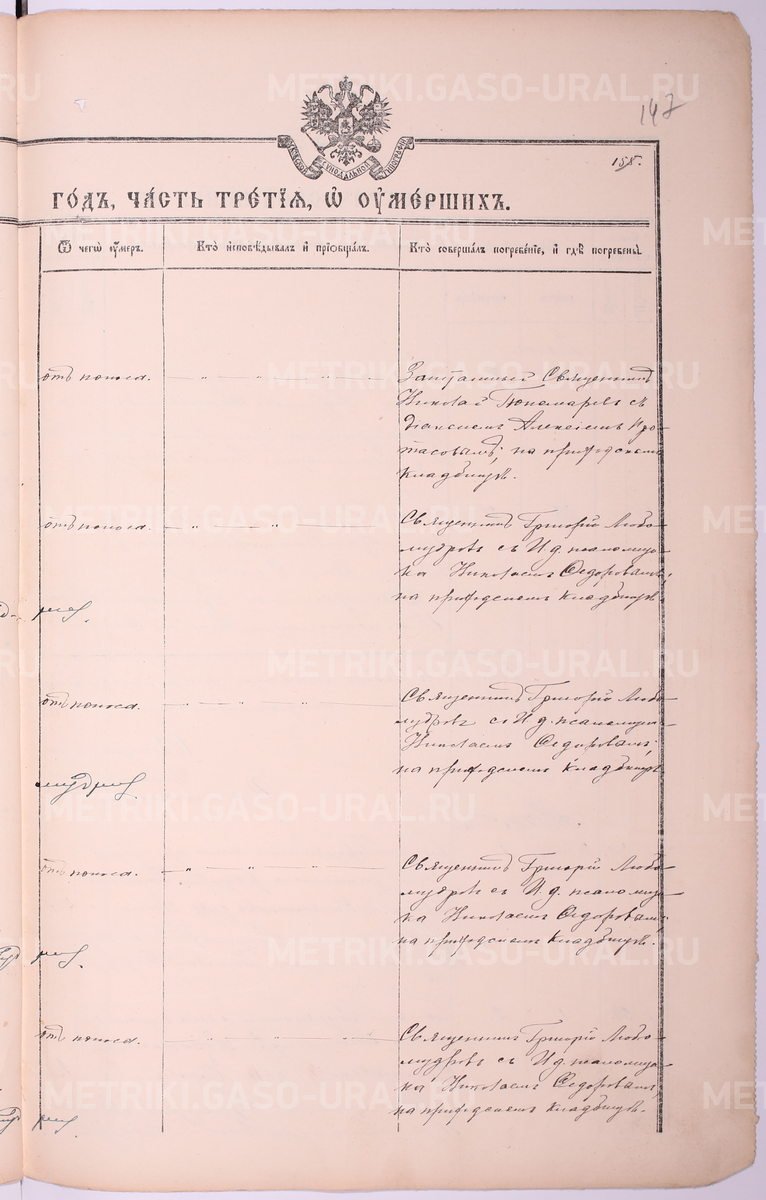 METRIKI.GASO-URAL.RU
147
158.
СѴНОДАЛЬНОЙ
ГО́ДЪ, ЧА́СТЬ ТРЕ́ТЇѦ, Ѡ҆ ОУ҆МЕ́РШИХЪ.
Ѿ чегѡ̀ оу҆́меръ.
Кто̀ и҆сповѣ́дывалъ и҆ прїѡбща́лъ.
Кто̀ соверша́лъ погребе́нїе, и҆ гдѣ̀ погребены̀.
отъ поноса. — " — " — "
Заштатный Священникъ
Николай Пономаревъ съ
Діакономъ Алексіемъ Про-
тасовымъ, на приходскомъ
кладбищѣ.
отъ поноса. — " — "
Священникъ Григорій Любо-
мудровъ съ И. д. псаломщи-
ка Николаемъ Ѳедоровымъ,
на приходскомъ кладбищѣ.
отъ поноса. — " — "
Священникъ Григорій Любо-
мудровъ съ И. д. псаломщи-
Николаемъ Ѳедоровымъ,
на приходскомъ кладбищѣ.
отъ поноса. — " — "
Священникъ Григорій Любо-
мудровъ съ И. д. псаломщи-
ка Николаемъ Ѳедоровымъ,
на приходскомъ кладбищѣ.
отъ поноса. — " — " — "
Священникъ Григорій Любо-
мудровъ съ И. д. псаломщи-
ка Николаемъ Ѳедоровымъ,
на приходскомъ кладбищѣ.